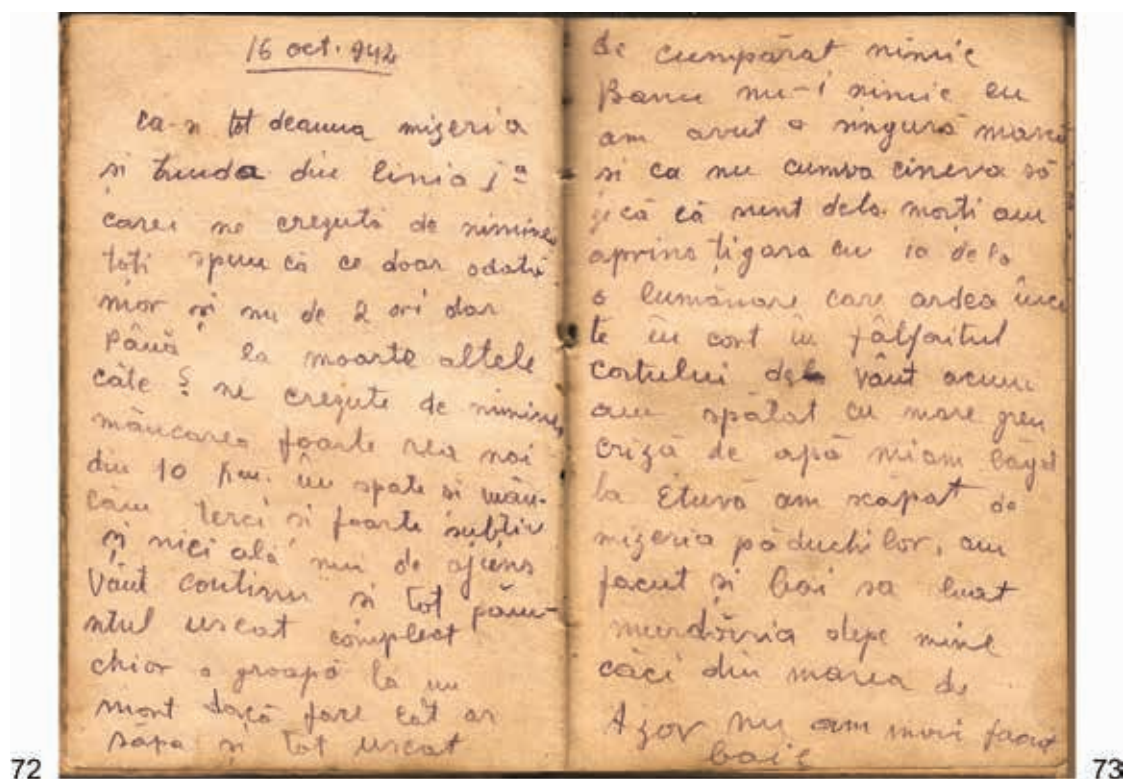 16 oct. 942
ca-n tot deauna mizeria
și truda din linia 1ª
carei ne crezută de nimine
toti spun că ce doar odată
mor și nu de 2 ori dar
până la moarte altele
câte ș ne crezute de nimine
mâncarea foarte rea noi
din 10 pm. în spate si mân-
căm terci si foarte subțire
și nici ala nui de ajuns
Vânt continu si tot pămâ-
ntul uscat complect
chior o groapă la un
mort dacă face cât ar
săpa și tot uscat
72
de cumpărat nimic
Banu nu-i nimic eu
am avut o singură marcă
si ca nu cumva cineva să
zică că sunt dela morti am
aprins țigara cu ia dela
o lumânare care ardea înce
te în cort în fâlfaitul
cortului de vânt acum
am spălat cu mare greu
criză de apă miam băgat
la Etuvă am scăpat de
mizeria păduchilor, am
facut si bai sa luat
murdăria depe mine
căci din marea de
Azov nu am mai facut
baie
73